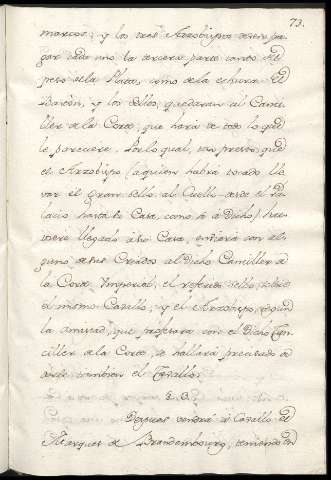 73.
marcos; y los tres Arzobispos deven pa-
gar cada uno la tercera parte tanto del
peso de la Plata, como de la echura del
Bastòn; y los sellos, quedaran al Canci-
ller de la Corte, que harà de todo lo que
le pareciere. Por lo qual, tan presto, que
el Arzobispo (aquien habrà tocado lle-
var el Gran Sello al Cuello desde el Pa-
lacio hasta su Casa, como se à dicho) hu-
viere llegado à su Casa, embiarà con al-
guno de sus Criados al dicho Canciller de
la Corte Imperial, el referido sello, sobre
el mismo Cavallo; y el Arzobispo, segun
la amistad, que profesara con el dicho Can-
ciller de la Corte, se hallarà precisado de
darle tambien el Cavallo.
2.3.
Despues vendrà à Cavallo el
Marques de Brandembourg, teniendo en